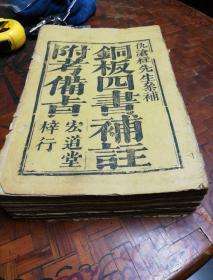 仇滄柱先生纂補
銅板四書補註
附考備旨
宏道堂
梓行